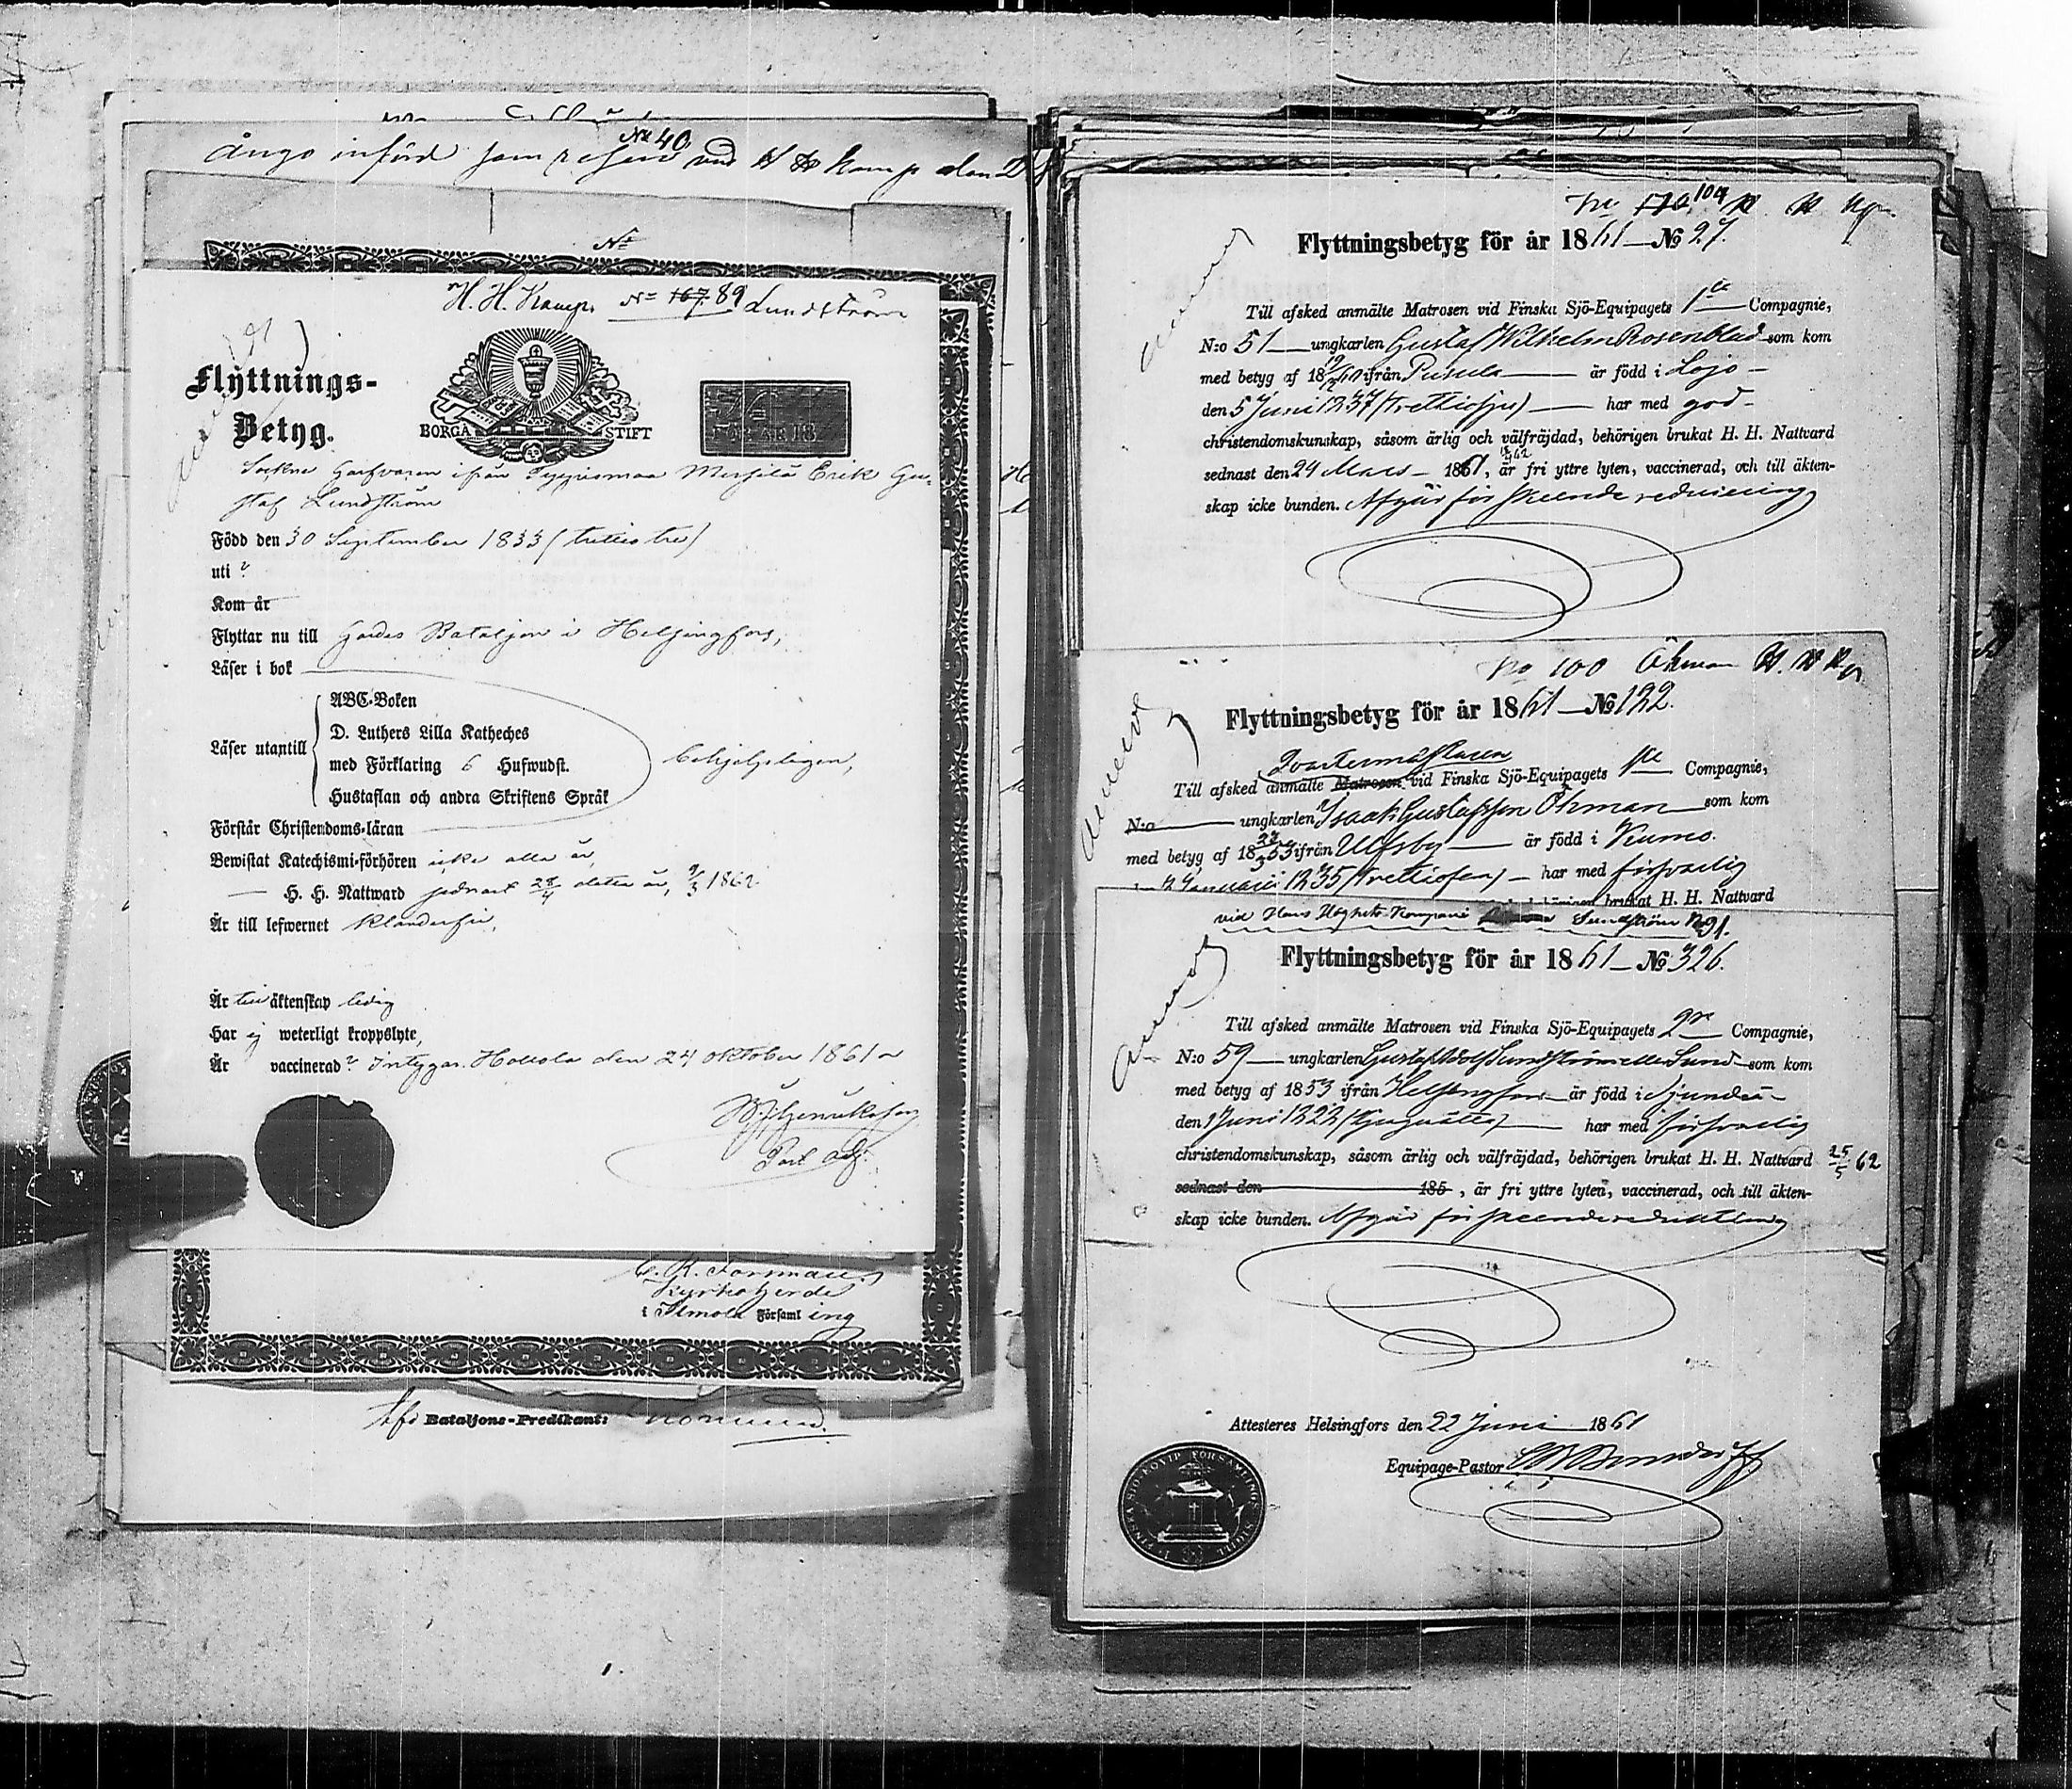 No 40
som vid H H Komp den
No
H. H. Komp. No 167. 89 Lundström
Flyttnings-
Betyg.
BORGÅ STIFT
FÖR ÅR 18
Sockne Garfvaren ifrån Erik Gu-
staf Lundström
Född den 30 September 1833 (trettio tre)
uti ?
Kom år
Flyttar nu till Gardes Bataljon i Helsingfors,
Läser i bok
Läser utantill
ABC-Boken
D. Luthers Lilla Katheches
med Förklaring 6 Hufwudst.
Hustaflan och andra Skriftens Språk
behjelpligen,
Förstår Christendoms-läran
Bewistat Katechismi-förhören icke alla år,
H. H. Nattward sednast 28/4 detta år, 9/3 1862
Är till lefwernet klanderfri,
Är till äktenskap ledig
Har ej weterligt kroppslyte,
Är vaccinerad? Intygar. Hollola den 24 oktober 1861
Past. adj.
C. R. Forsman
Kyrkoherde
i Ilmola Församling
Bataljons-Predikant:
No 170 104 H. H. Kp.
Flyttningsbetyg för år 1861 — No 27.
Till afsked anmälte Matrosen vid Finska Sjö-Equipagets 1sta Compagnie,
N:o 51 ungkarlen Gustaf Wilhelm Rosenblad som kom
med betyg af 1860 ifrån Pusula är född i Lojo
den 5 Juni 1837 (trettiosju) har med god
christendomskunskap, såsom ärlig och välfräjdad, behörigen brukat H. H. Nattvard
sednast den 24 Mars 1861, är fri yttre lyten, vaccinerad, och till äkten-
skap icke bunden. Afgår för skeende reducering
No 100 Öhman H. H. Kp.
Flyttningsbetyg för år 1861 — No 122.
Qvartermästaren
Till afsked anmälte Matrosen vid Finska Sjö-Equipagets 1sta Compagnie,
N:o ungkarlen Isaak Gustafsson Öhman som kom
med betyg af 1853 ifrån Ulfsby är född i Kumo
Januari 1835 (trettiofem) har med försvarlig
brukat H. H. Nattvard
vid Hans Höghets Kompani Sundström No 91.
Flyttningsbetyg för år 1861 — No 326.
Till afsked anmälte Matrosen vid Finska Sjö-Equipagets 2ra Compagnie,
N:o 59 ungkarlen Gustaf Adolf Sundström eller Sund som kom
med betyg af 1853 ifrån Helsingfors är född i Sjundeå
den 1 Juni 1828 (tjuguåtta) har med försvarlig
christendomskunskap, såsom ärlig och välfräjdad, behörigen brukat H. H. Nattvard 25/5 62
sednast den 185 , är fri yttre lyten, vaccinerad, och till äkten-
skap icke bunden. Afgår för skeende
Attesteres Helsingfors den 22 Juni 1861
Equipage-Pastor
FINSKA SJÖ-EQVIP FÖRSAMLINGS SIGILL